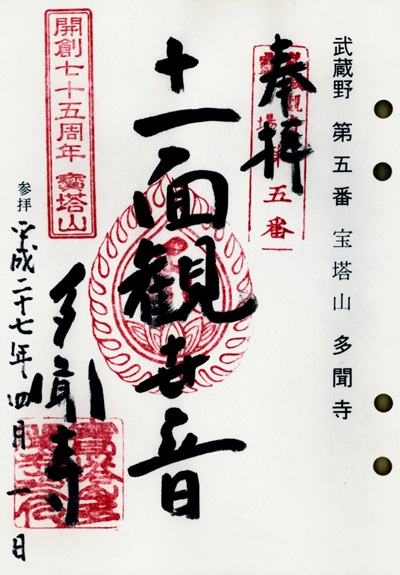 武蔵野 第五番 宝塔山 多聞寺
奉拝
五番
十一面観世音
開創七十五周年 寳塔山
多聞寺
参拝 平成二十七年四月一日